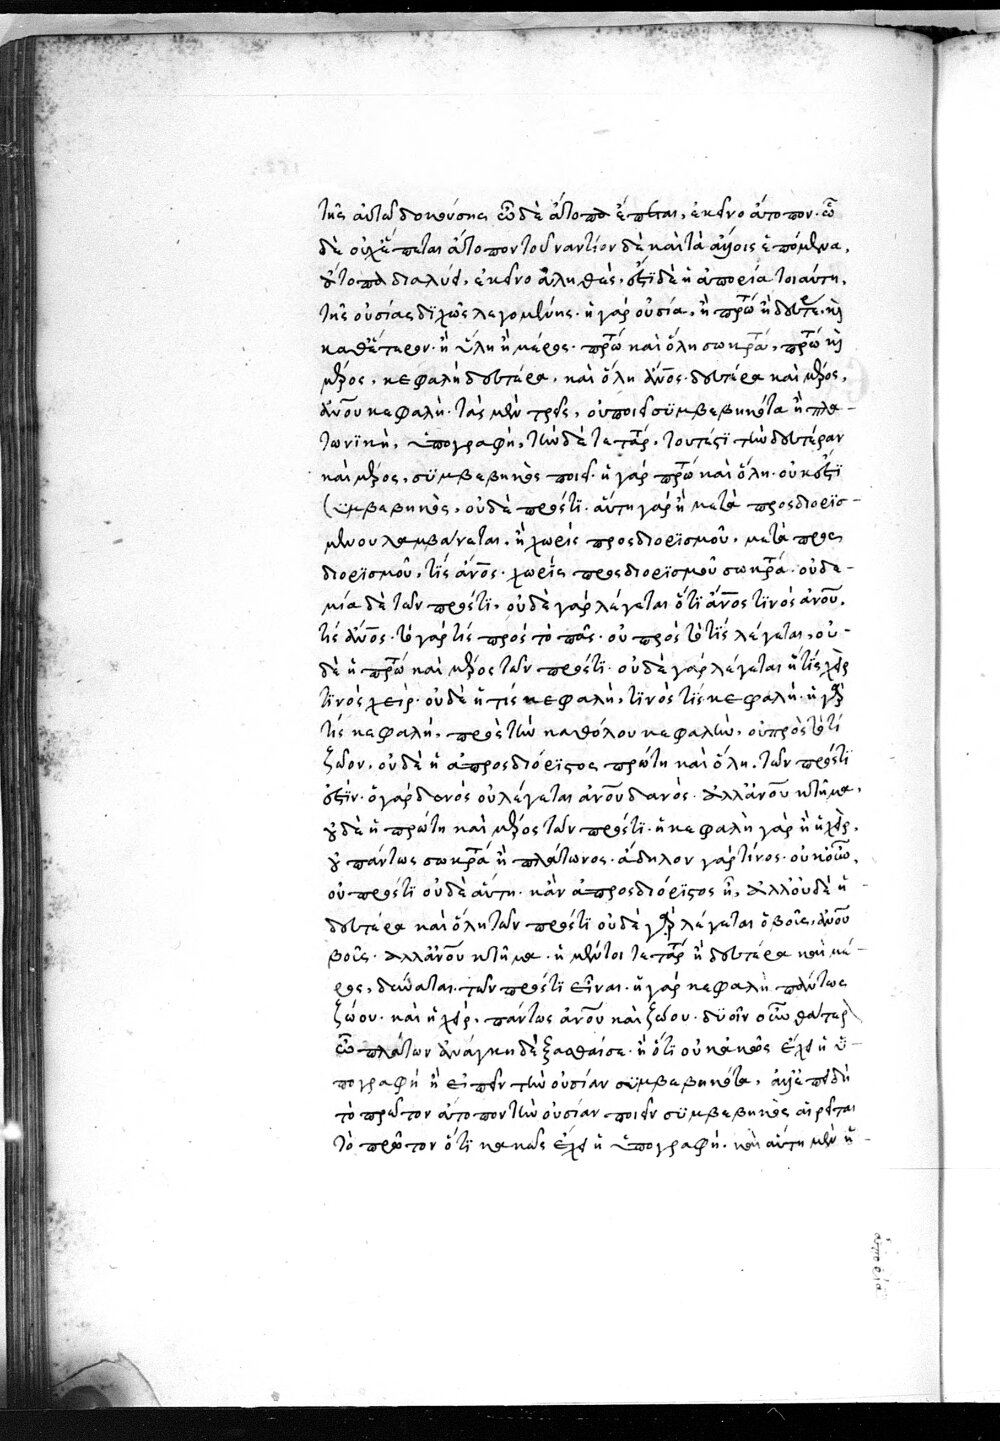 τῆς αὐτῶ δοκούσης ὧ δὲ ἄτοπα ἕπεται, ἐκεῖνο ἄτοπον. ὧ
δὲ οὐχ ἕπεται ἄτοπον τοὐναντίον δὲ καὶ τὰ ἄλλοις ἑπόμενα,
ἄτοπα διαλύει, ἐκεῖνο ἀληθές. ἔστϊ δὲ ἡ ἀπορία τοιαύτη,
τῆς οὐσίας διχῶς λεγομένης. ἡ γὰρ οὐσία, ἢ πρώ ἢ δευτέ. καὶ
καθ' ἕτερον. ἢ ὅλη ἢ μέρος. πρώ καὶ ὅλη σωκρά, πρώ καὶ
μέρος, κεφαλὴ δευτέρα, καὶ ὅλη ἄνος. δευτέρα καὶ μέρος,
ἀνου κεφαλή. τὰς μὲν τρεῖς, οὐ ποιεῖ συμβεβηκότα ἡ πλα-
τωνϊκὴ, ὑπογραφή, τὴν δὲ τετάρ, τουτέστϊ τὴν δευτέραν
καὶ μέρος, συμβεβηκὸς ποιεῖ. ἡ γὰρ πρώ καὶ ὅλη. οὐκ ἔστϊ
συμβεβηκὸς, οὐδὲ πρόςτϊ. αὕτη γὰρ ἢ μετὰ προσδιορϊσ-
μένου λαμβάνεται, ἢ χωρὶς προσδιορϊσμοῦ, μετὰ προς
διορϊσμοῦ, τϊς ἄνος. χωρὶς προσδιορϊσμοῦ σωκρά. οὐδε-
μία δὲ τῶν πρόςτϊ, οὐδὲ γὰρ λέγεται ὅτϊ ἄνος τϊνὸς ἀνου,
τὶς ἄνος. τὸ γὰρ τὶς πρὸς τὸ πᾶς. οὐ πρὸς τὸ τὶς λέγεται, οὐ-
δὲ ἡ πρώ καὶ μέρος τῶν πρόςτϊ. οὐδὲ γὰρ λέγεται ἥ τϊς χεὶρ
τϊνὸς χείρ. οὐδὲ ἥ τις κεφαλὴ, τϊνὸς τὶς κεφαλή. ἡ γὰρ
τὶς κεφαλή, πρὸς τὴν καθόλου κεφαλὴν, οὐ πρὸς τὸ τὶ
ζῶον, οὐδὲ ἡ ἀπροσδιόρϊστος πρώτη καὶ ὅλη. τῶν πρόςτϊ
ἐστϊν. ὁ γὰρ δεινὸς οὐ λέγεται ἀνου δεινὸς. ἀλλ' ἀνου κτῆμα,
οὐδὲ ἡ πρώτη καὶ μέρος τῶν πρόςτϊ. ἡ κεφαλὴ γὰρ ἢ ἡ χεὶρ,
οὐ πάντως σωκρά ἢ πλάτωνος. ἄδηλον γὰρ τίνος. οὐκοῦν,
οὐ πρόςτϊ οὐδὲ αὕτη. κἂν ἀπροσδιόρϊστος ᾖ, ἀλλ' οὐδὲ ἡ
δευτέρα καὶ ὅλη τῶν πρόςτϊ οὐδὲ γὰρ λέγεται ὁ βοῦς, ἀνου
βοῦς. ἀλλ' ἀνου κτῆμα. ἡ μέντοι τετάρ ἢ δευτέρα καὶ μέ-
ρος, δύναται. τῶν πρόςτϊ εἶναι. ἡ γὰρ κεφαλὴ πάντως
ζώου. καὶ ἡ χεὶρ, πάντως ἀνου καὶ ζώου. δυοῖν οὖν θάτερ
ὦ πλάτων ἀνάγκη δέξασθαί σε. ἢ ὅτϊ οὐ κακῶς ἔχει ἡ ὑ-
πογραφὴ ἢ εἰπεῖν τὴν οὐσίαν συμβεβηκότα, ἀλλ' ἐπειδὴ
τὸ πρῶτον ἄτοπον τὴν οὐσίαν ποιεῖν συμβεβηκὸς αἱρεῖται
τὸ πρῶτον ὅτϊ κακῶς ἔχει ἡ ὑπογραφή. καὶ αὕτη μὲν ἡ-